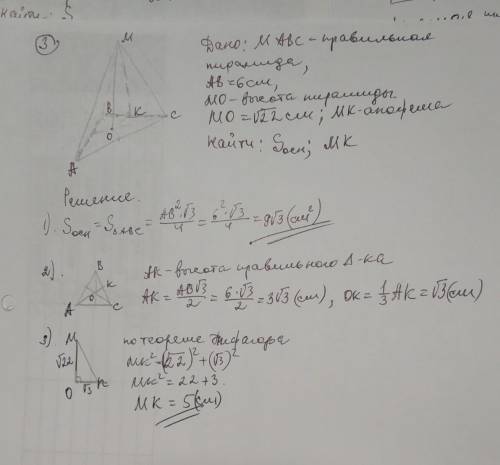 Найти: S
3)
M
B K C
O
A
Дано: MABC – правильная
пирамида,
AB = 6 см,
MO – высота пирамиды
MO = √22 см; MK – апофема
Найти: Sосн; MK
Решение.
1). Sосн = S△ABC = AB²·√3/4 = 6²·√3/4 = 9√3 (см²)
2).
B
K
O
A C
AK – высота правильного Δ-ка
AK = AB√3/2 = 6·√3/2 = 3√3 (см), OK = 1/3 AK = √3 (см)
3)
M
√22
O √3 K
по теореме Пифагора
MK² = (√22)² + (√3)²
MK² = 22 + 3.
MK = 5 (см)